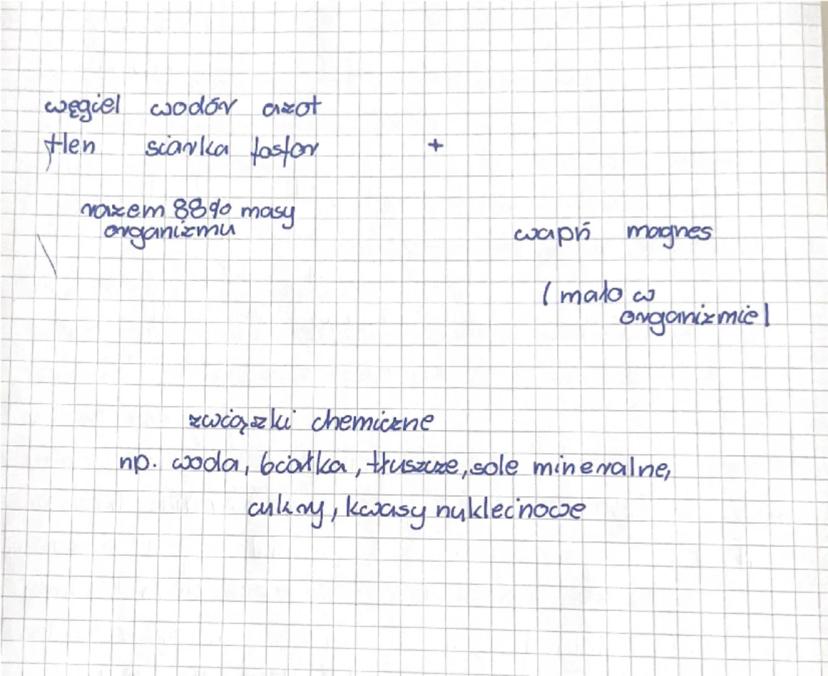 węgiel wodór azot
tlen siarka fosfor +
razem 88% masy
organizmu
wapń magnes
(mało w
organizmie)
związki chemiczne
np. woda, białka, tłuszcze, sole mineralne,
cukry, kwasy nukleinowe